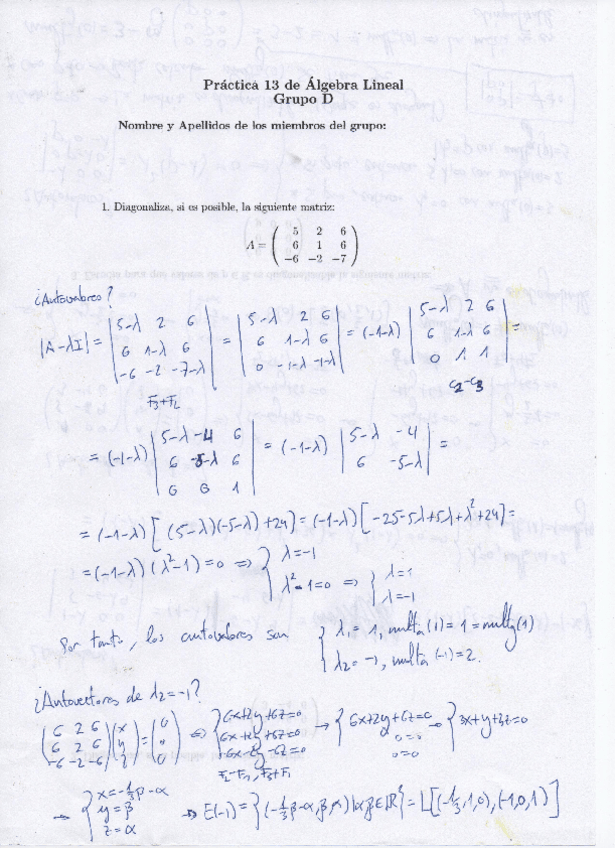 Práctica 13 de Álgebra Lineal
Grupo D
Nombre y Apellidos de los miembros del grupo:
1. Diagonaliza, si es posible, la siguiente matriz:
A = ( 5 2 6
6 1 6
−6 −2 −7 )
¿Autovalores?
|A-λI| = |5-λ 2 6; 6 1-λ 6; -6 -2 -7-λ| = |5-λ 2 6; 6 1-λ 6; 0 -1-λ -1-λ| = (-1-λ) |5-λ 2 6; 6 1-λ 6; 0 1 1| =
F3+F2 C2-C3
= (-1-λ) |5-λ -4 6; 6 -5-λ 6; 0 0 1| = (-1-λ) |5-λ -4; 6 -5-λ| =
= (-1-λ) [(5-λ)(-5-λ)+24] = (-1-λ) [-25-5λ+5λ+λ²+24] =
= (-1-λ) (λ²-1) = 0 ⇒ { λ=-1
λ²-1=0 ⇒ { λ=1
λ=-1
Por tanto, los autovalores son { λ1 = 1, multa(1) = 1 = multg(1)
λ2 = -1, multa(-1) = 2.
¿Autovectores de λ2=-1?
(6 2 6; 6 2 6; -6 -2 -6) (x; y; z) = (0; 0; 0) ⇔ { 6x+2y+6z=0; 6x+2y+6z=0; -6x-2y-6z=0 → { 6x+2y+6z=0; 0=0; 0=0 → { 3x+y+3z=0
F2-F1, F3+F1
→ { x=-1/3β-α
y=β
z=α
⇒ E(-1) = {(-1/3β-α, β, α) | α,β∈ℝ} = L[(-1/3,1,0),(-1,0,1)]